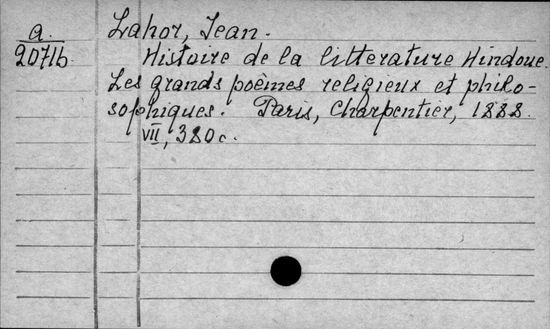 a.
2071b
Lahor, Jean.
Histoire de la litterature Hindoue.
Les grands poèmes religieux et philo-
sophiques. Paris, Charpentier, 1888.
VII, 380 c.